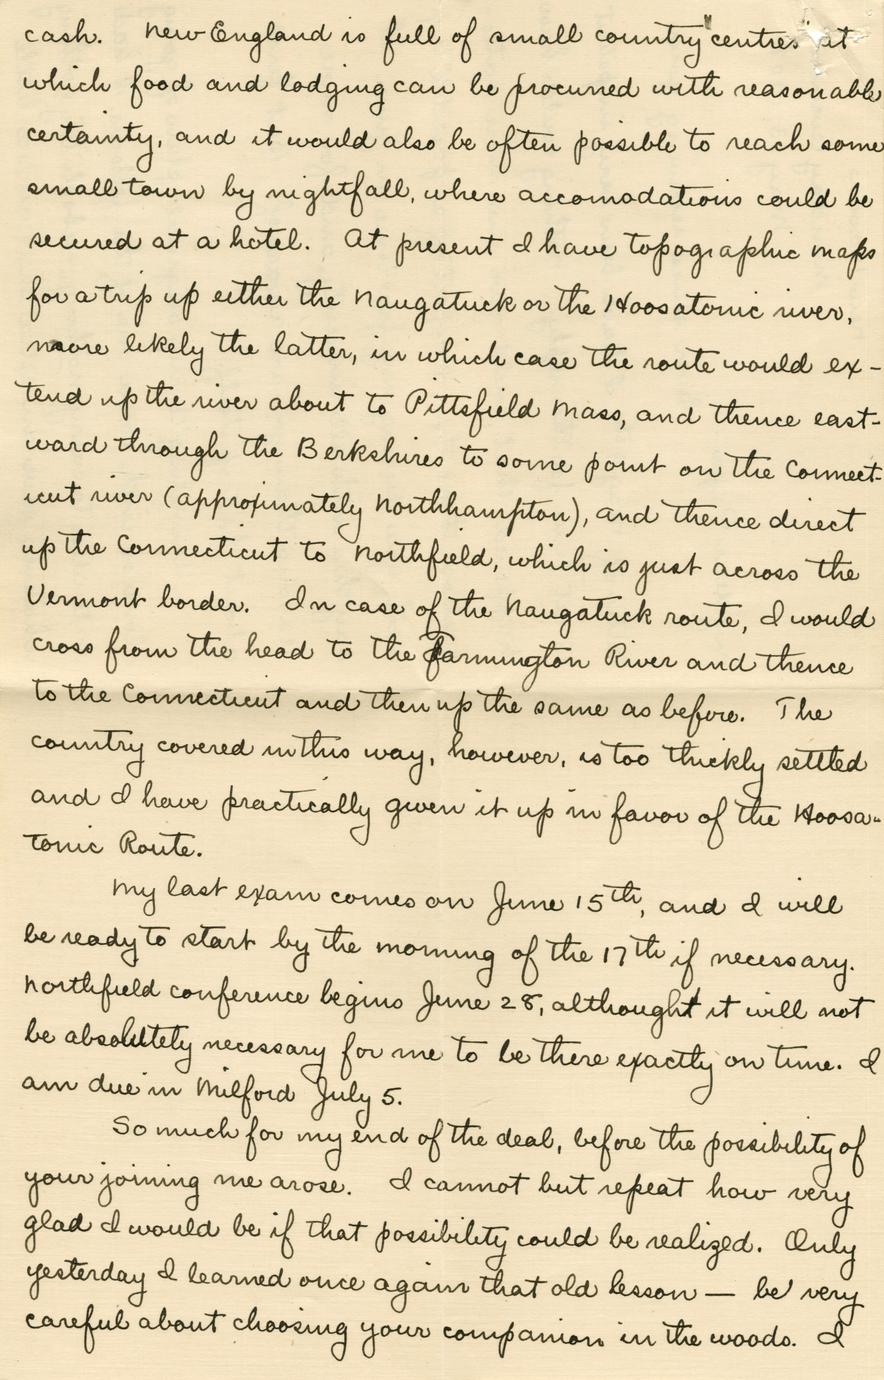 cash. New England is full of small country "centres" at
which food and lodging can be procured with reasonable
certainty, and it would also be often possible to reach some
small town by nightfall, where accomodations could be
secured at a hotel. At present I have topographic maps
for a trip up either the Naugatuck or the Hoosatonic river,
more likely the latter, in which case the route would ex-
tend up the river about to Pittsfield Mass, and thence east-
ward through the Berkshires to some point on the Connect-
icut river (approximately Northhampton), and thence direct
up the Connecticut to Northfield, which is just across the
Vermont border. In case of the Naugatuck route, I would
cross from the head to the Farmington River and thence
to the Connecticut and then up the same as before. The
country covered in this way, however, is too thickly settled
and I have practically given it up in favor of the Hoosa-
tonic Route.
My last exam comes on June 15th, and I will
be ready to start by the morning of the 17th if necessary.
Northfield conference begins June 28, although it will not
be absolutely necessary for me to be there exactly on time. I
am due in Milford July 5.
So much for my end of the deal, before the possibility of
your joining me arose. I cannot but repeat how very
glad I would be if that possibility could be realized. Only
yesterday I learned once again that old lesson — be very
careful about choosing your companion in the woods. I